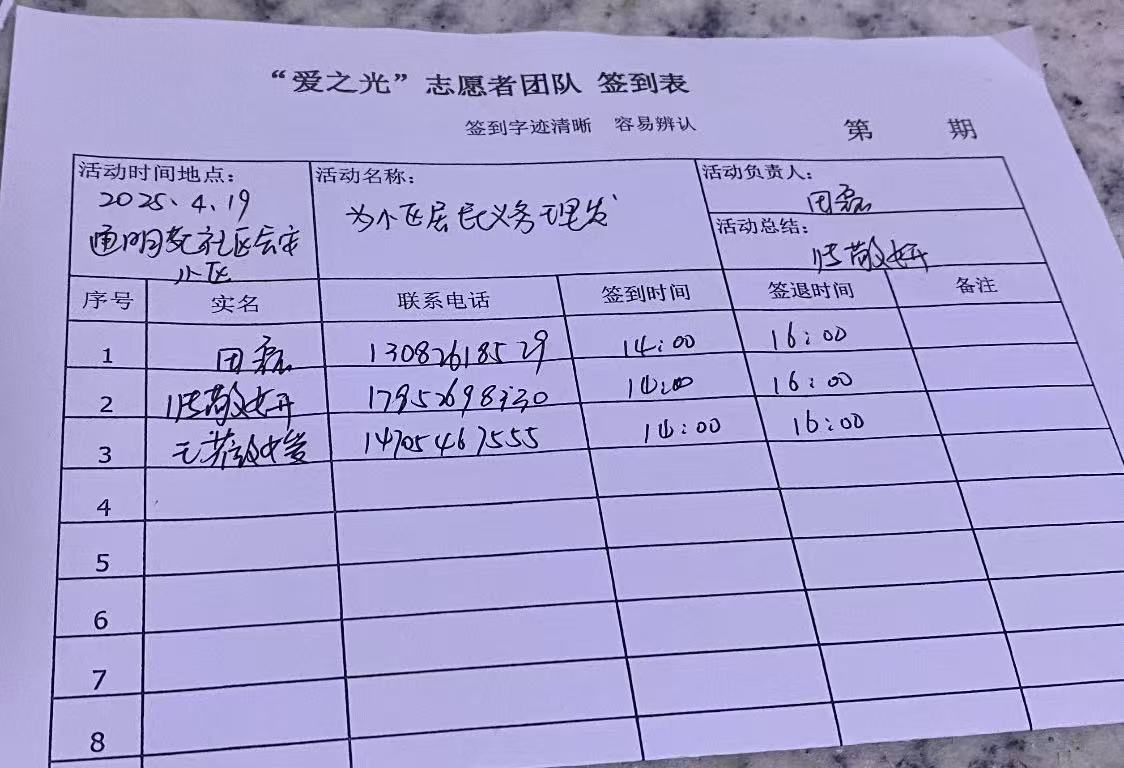 “爱之光”志愿者团队 签到表
签到字迹清晰 容易辨认
第 期
活动时间地点：
2025、4、19
社区
小区
活动名称：
为小区居民义务理发
活动负责人：
活动总结：
张敬妍
序号 实名 联系电话 签到时间 签退时间 备注
1 13082618529 14:00 16:00
2 张敬妍 17952698330 14:00 16:00
3 14705467555 14:00 16:00
4
5
6
7
8